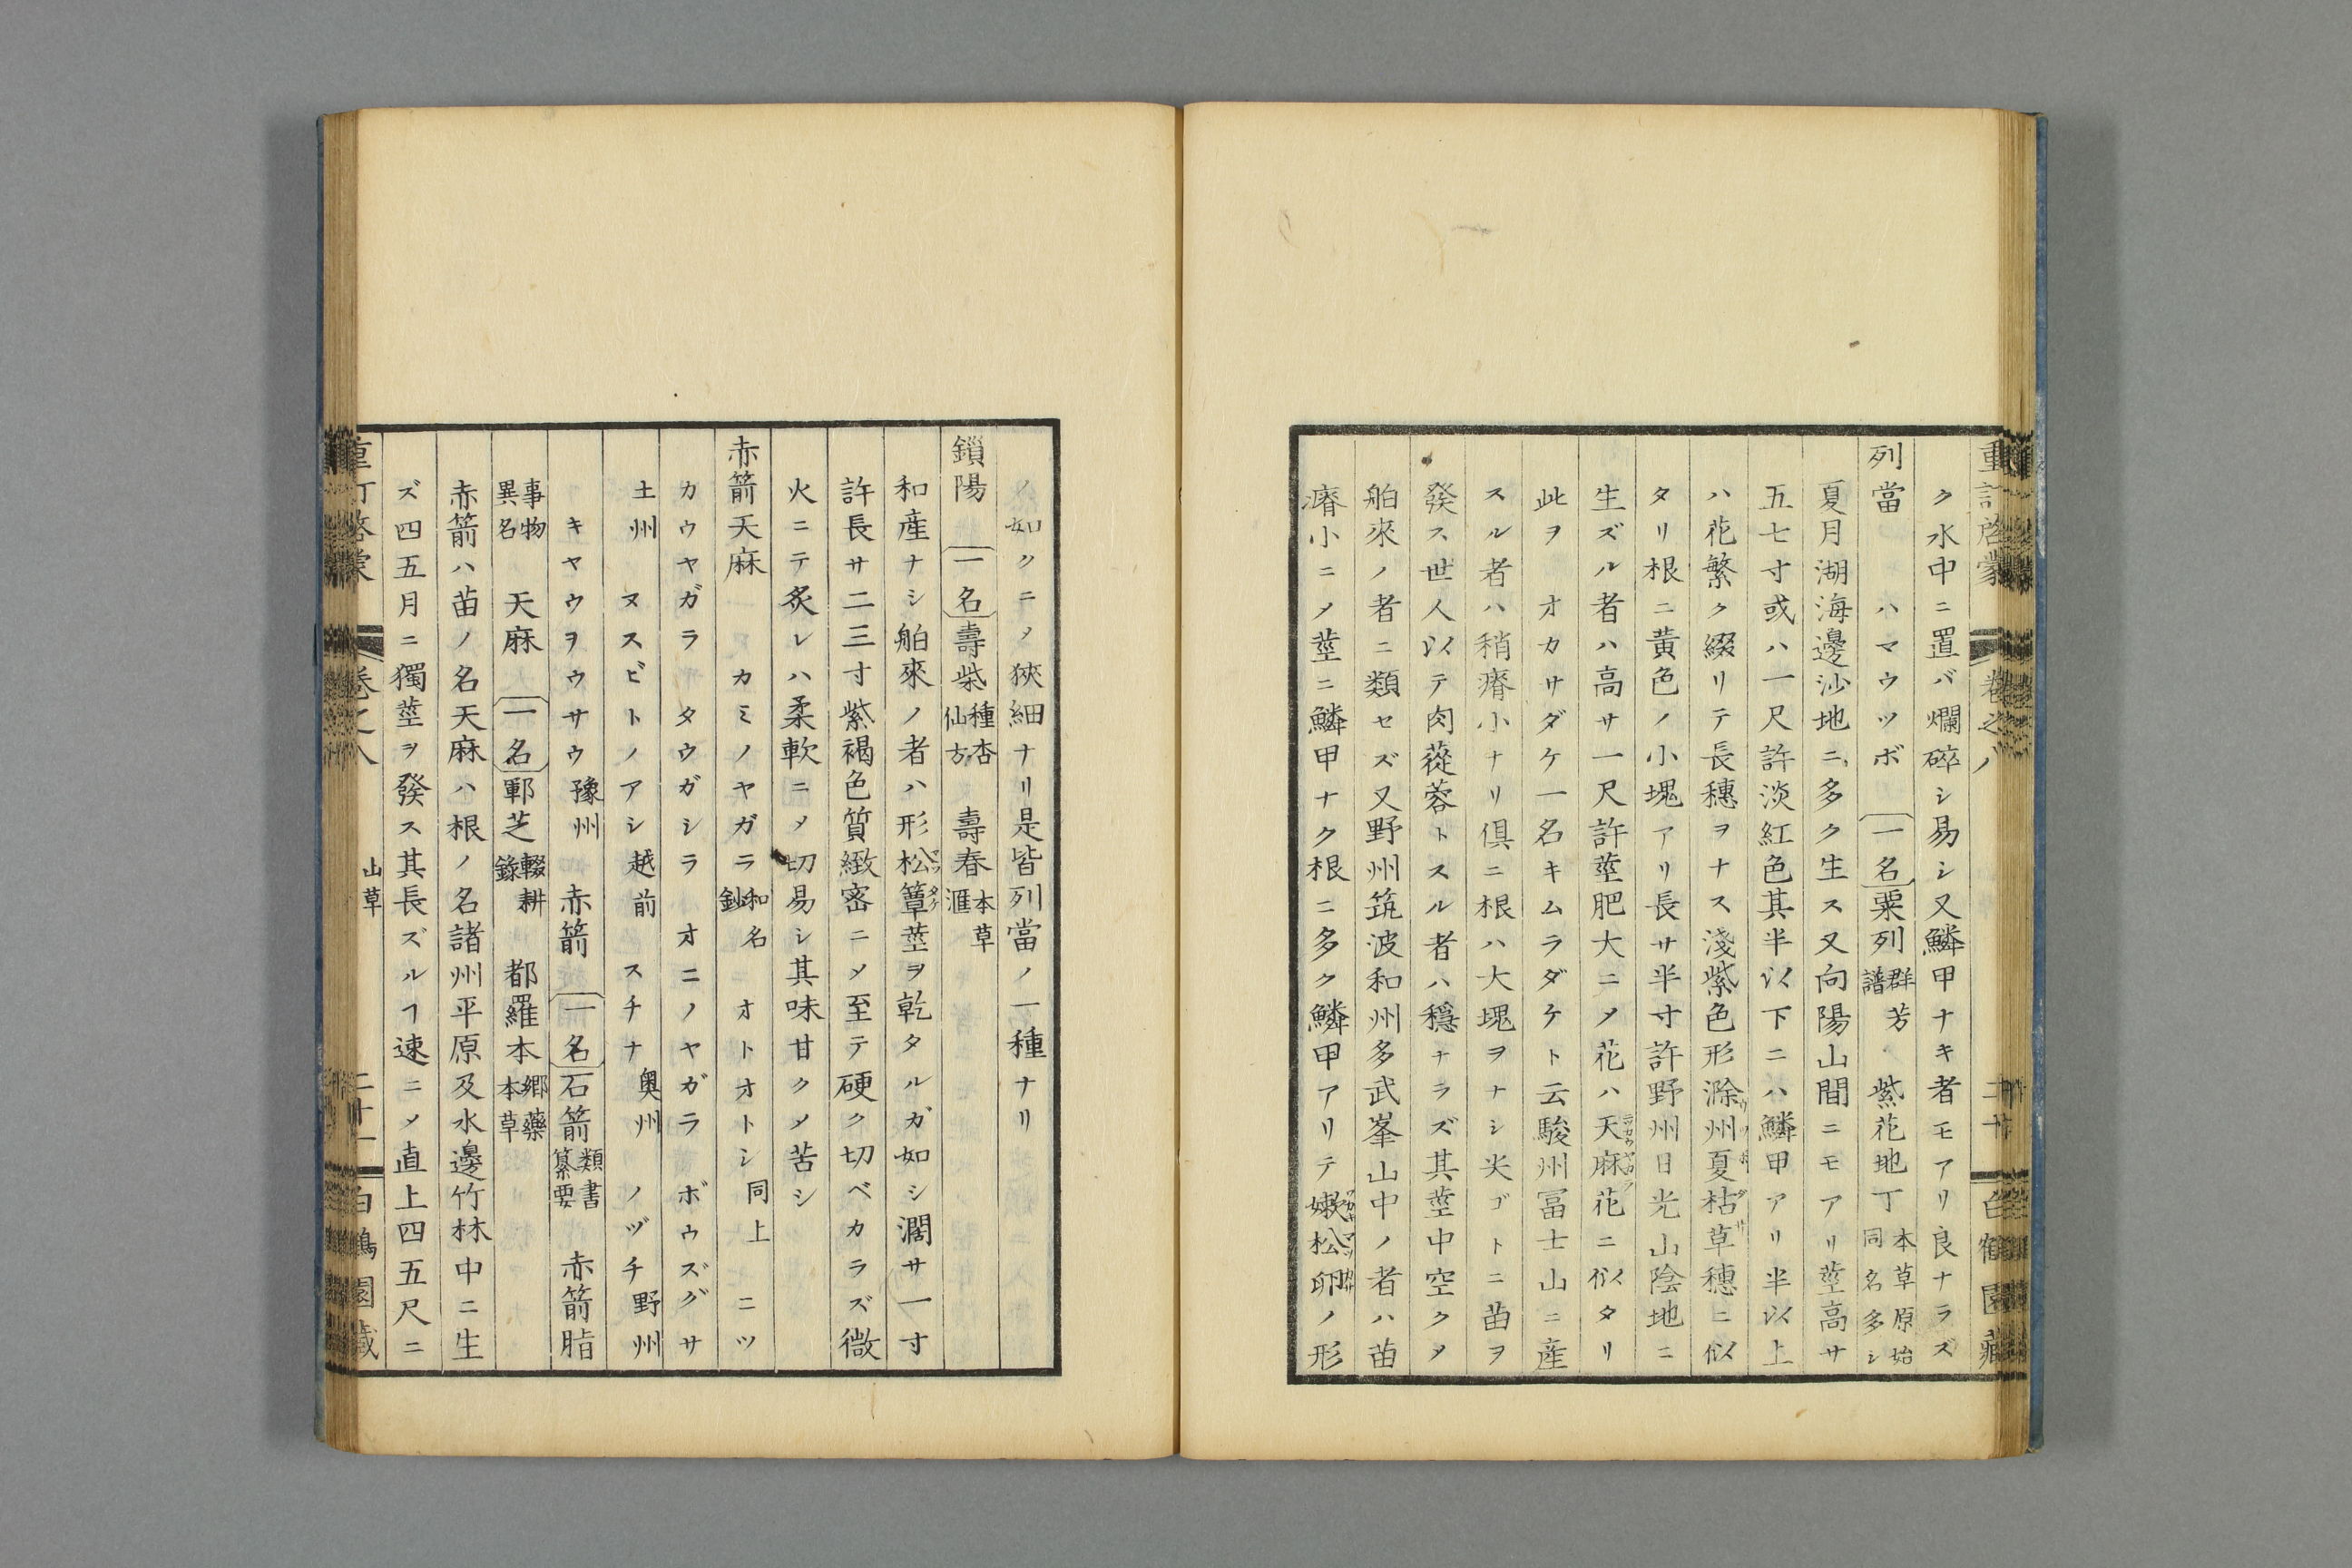 重訂啓蒙 卷之八 二十 白鶴園藏
ク水中ニ置バ爛碎シ易シ又鱗甲ナキ者モアリ良ナラズ
列當 ハマウツボ 一名 粟列 群芳譜 紫花地丁 本草原始同名多シ
夏月湖海邊沙地ニ多ク生ス又向陽山間ニモアリ莖高サ
五七寸或ハ一尺許淡紅色其半以下ニハ鱗甲アリ半以上
ハ花繁ク綴リテ長穗ヲナス淺紫色形滁州夏枯草穗ニ似
タリ根ニ黃色ノ小塊アリ長サ半寸許野州日光山陰地ニ
生ズル者ハ高サ一尺許莖肥大ニメ花ハ天麻花ニ似タリ
此ヲ オカサダケ一名キムラダケト云駿州冨士山ニ產
スル者ハ稍瘠小ナリ倶ニ根ハ大塊ヲナシ尖ゴトニ苗ヲ
發ス世人以テ肉蓯蓉トスル者ハ穩ナラズ其莖中空クメ
舶來ノ者ニ類セズ又野州筑波和州多武峯山中ノ者ハ苗
瘠小ニメ莖ニ鱗甲ナク根ニ多ク鱗甲アリテ嫩松卵ノ形
ノ如クニメ狹細ナリ是皆列當ノ一種ナリ
鎻陽 一名 壽柴 種杏仙方 壽春 本草滙
和產ナシ舶來ノ者ハ形松蕈莖ヲ乾タルガ如シ濶サ一寸
許長サ二三寸紫褐色質緻密ニメ至テ硬ク切ベカラズ微
火ニテ炙レハ柔軟ニメ切易シ其味甘クメ苦シ
赤箭天麻 カミノヤガラ 和名鈔 オトオトシ 同上 ニツ
カウヤガラ タウガシラ オニノヤガラ ボウズグサ
土州 ヌスビトノアシ 越前 スチナ 奥州 ノヅチ 野州
キヤウヲウウサウ 豫州 赤箭 一名 石箭 類書纂要 赤箭脂
事物異名 天麻 一名 鄆芝 輟耕錄 都羅本 郷藥本草
赤箭ハ苗ノ名天麻ハ根ノ名諸州平原及水邊竹林中ニ生
ズ四五月ニ獨莖ヲ發ス其長ズルヿ速ニメ直上四五尺ニ
重訂啓蒙 卷之八 山草 二十一 白鶴園藏